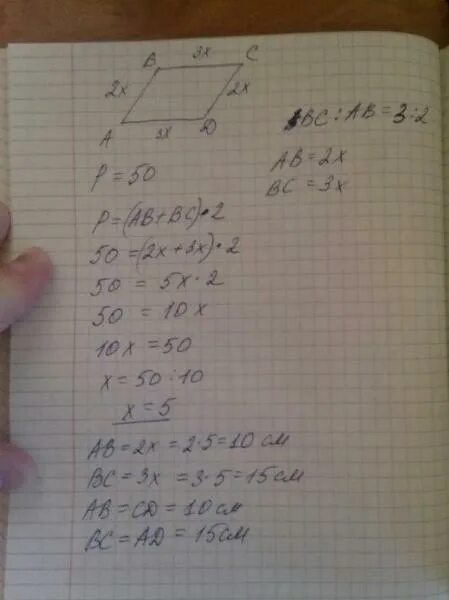 3x
B C
2x 2x
A D
3x
BC : AB = 3 : 2
AB = 2x
BC = 3x
P = 50
P = (AB + BC) • 2
50 = (2x + 3x) • 2
50 = 5x · 2
50 = 10x
10x = 50
x = 50 : 10
x = 5
AB = 2x = 2·5 = 10 см
BC = 3x = 3·5 = 15 см
AB = CD = 10 см
BC = AD = 15 см